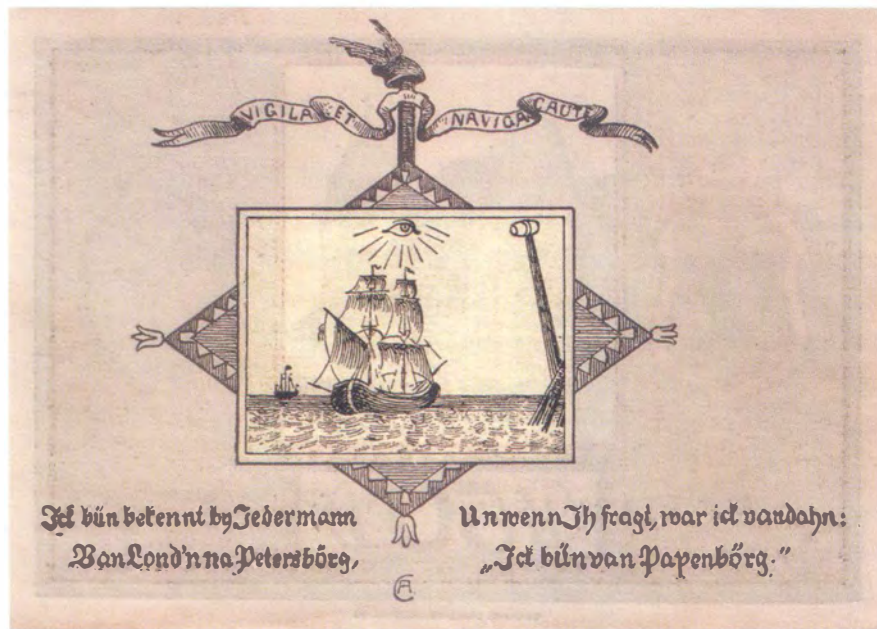 VIGILA ET NAVIGA CAUTE
Ick bün bekennt by Jedermann
Van Lond'n na Petersbörg,
Un wenn Jh fragt, war ick vandahn:
„Ick bün van Papenbörg.“